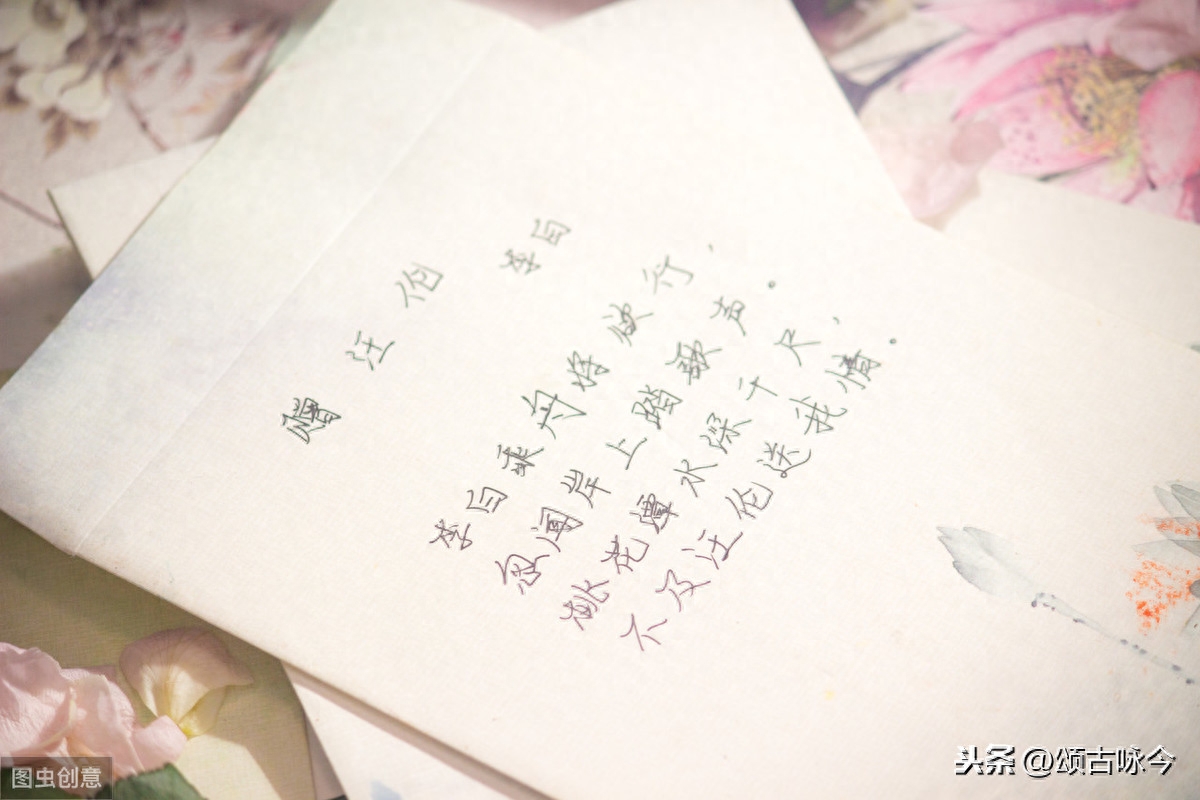 赠汪伦 李白
李白乘舟将欲行，
忽闻岸上踏歌声。
桃花潭水深千尺，
不及汪伦送我情。
图虫创意
头条 @颂古咏今